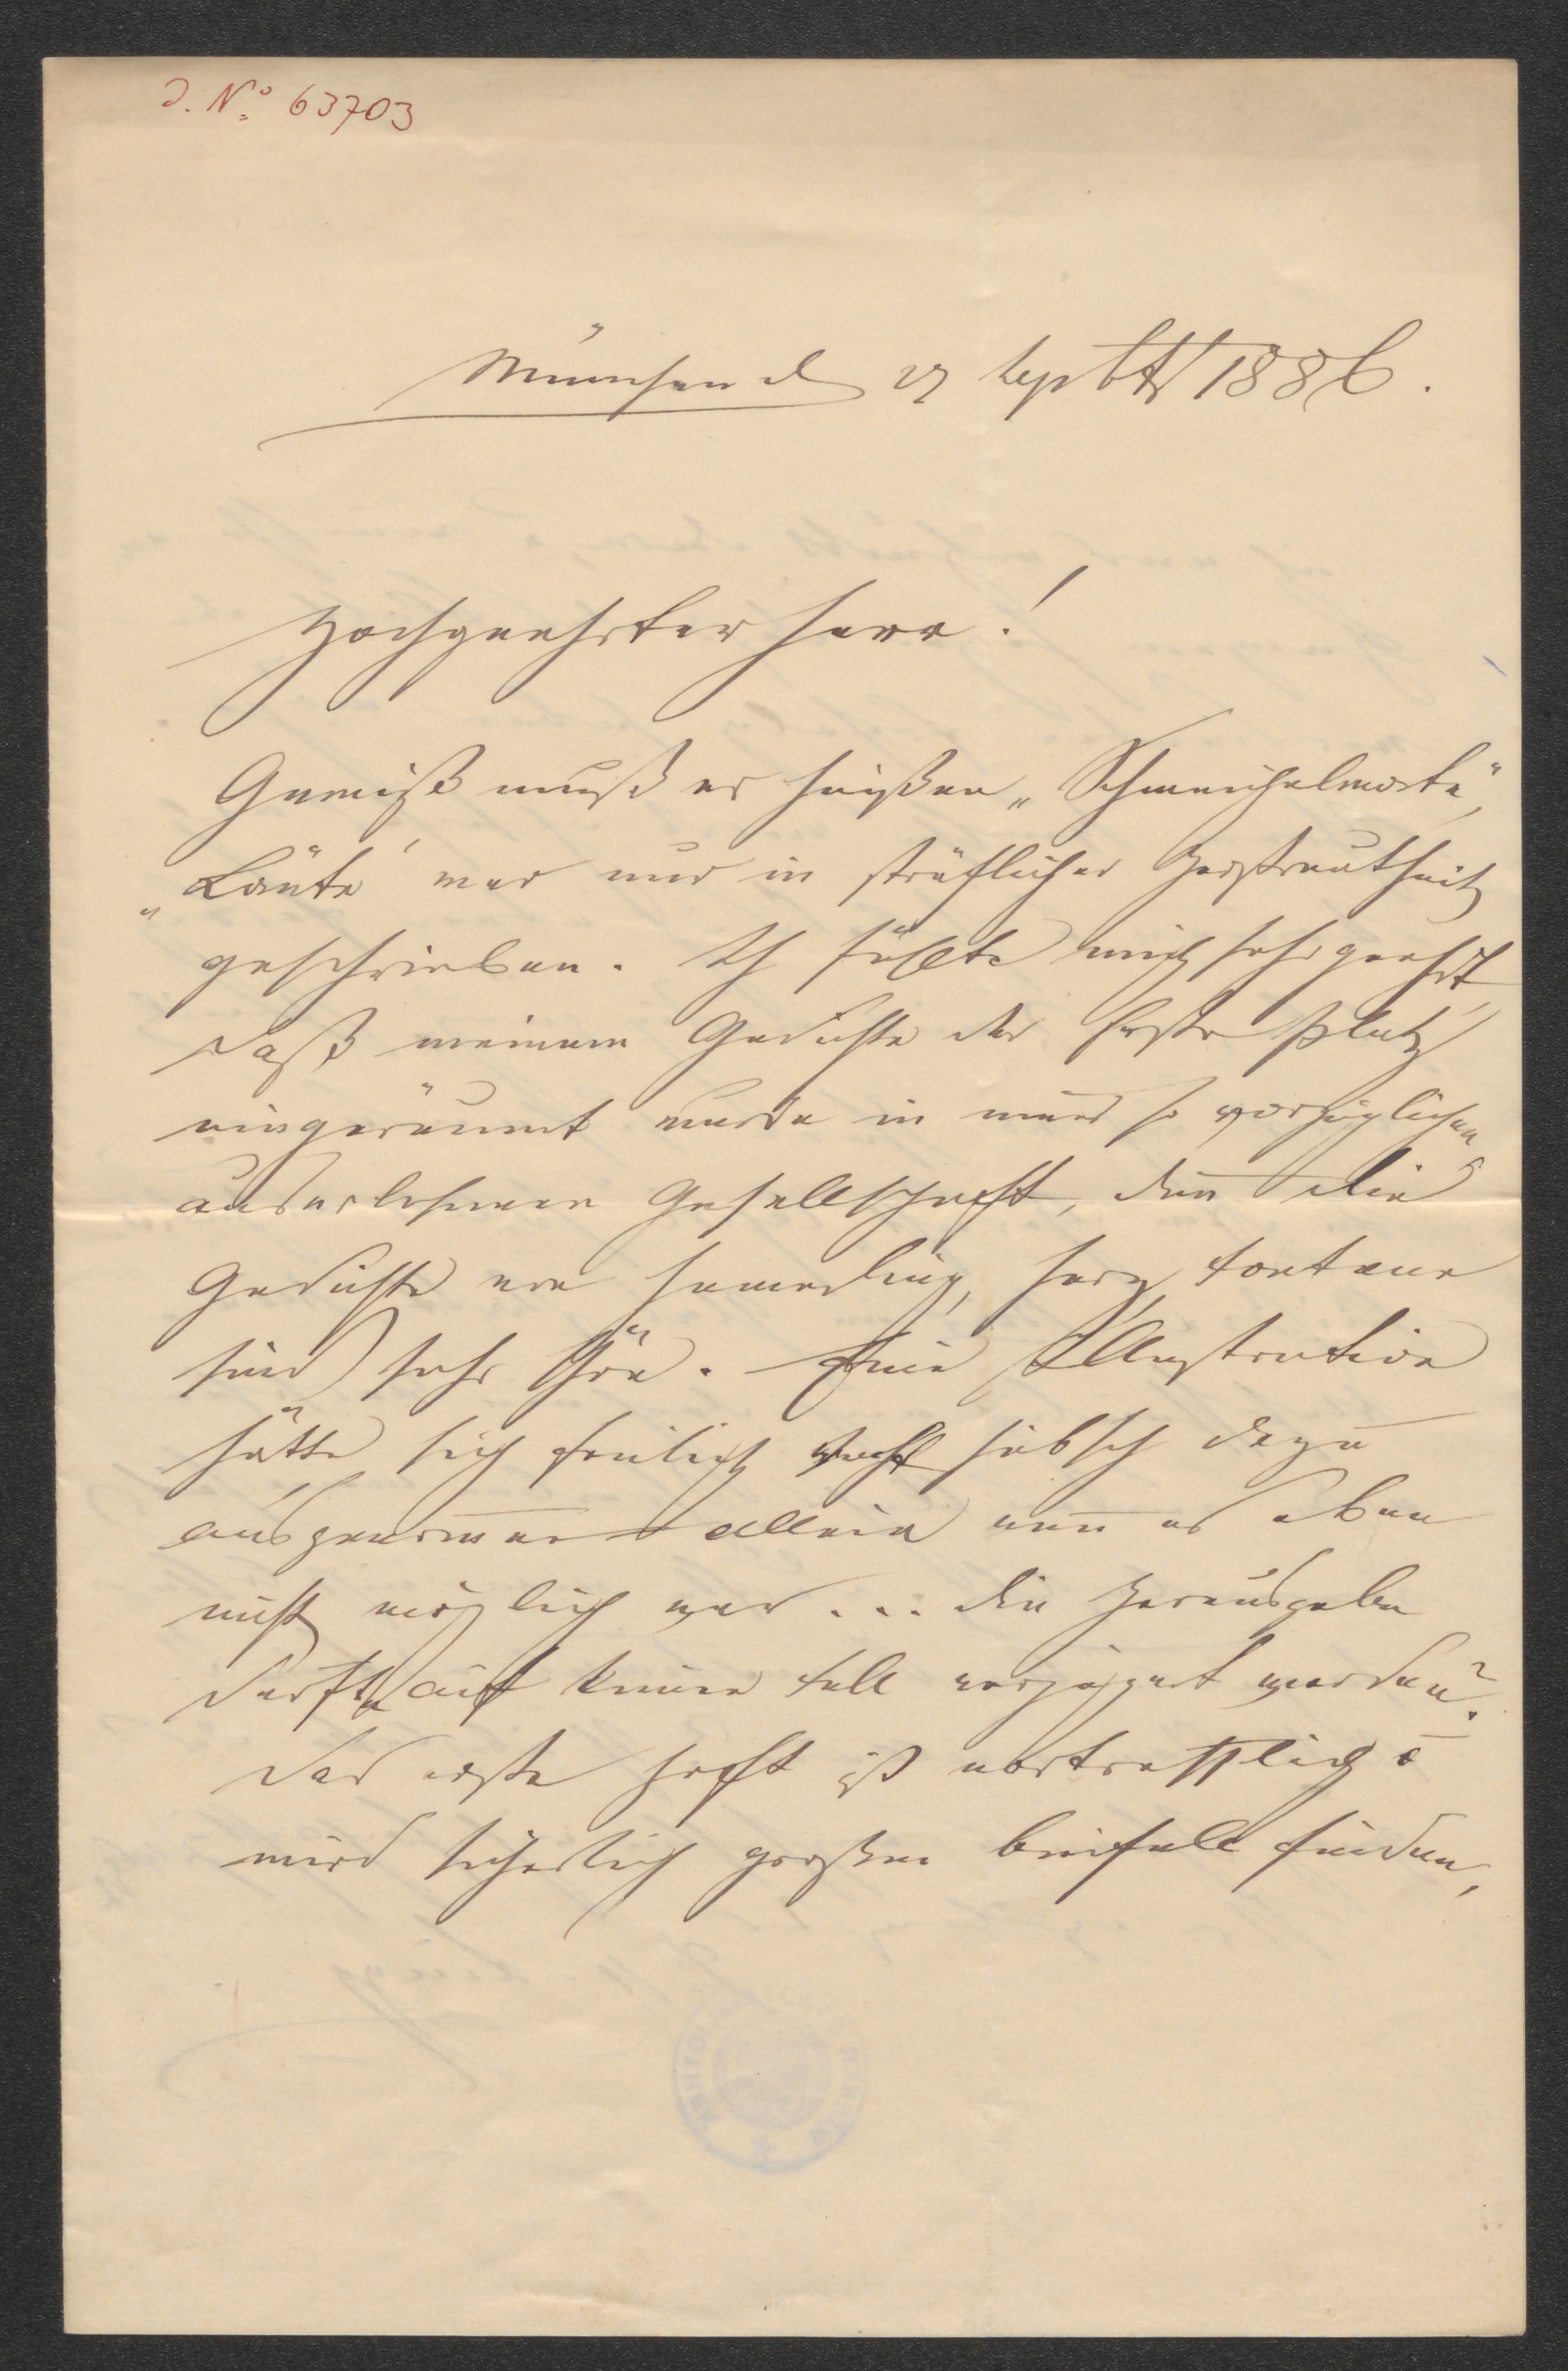 J. N.º 63703
München d 17 Septbr 1886.
Hochgeehrter Herr!
Gewiß muß es heißen „Schmeichelworte",
„Laute" war nur in sträflicher Zerstreutheit
geschrieben. Ich fühlte mich sehr geehrt,
daß meinem Gedichte der erste Platz
eingeräumt wurde in einer so vorzüglichen
auserlesenen Gesellschaft, denn die
Gedichte von Hamerling, Herz, Fontane
sind sehr schön. Eine Illustration
hätte sich freilich recht hübsch dazu
ausgenommen allein wenn es eben
nicht möglich war ... die Herausgabe
durfte auf keinen Fall verzögert werden?
Das erste Heft ist vortrefflich u
wird sicherlich großen Beifall finden,